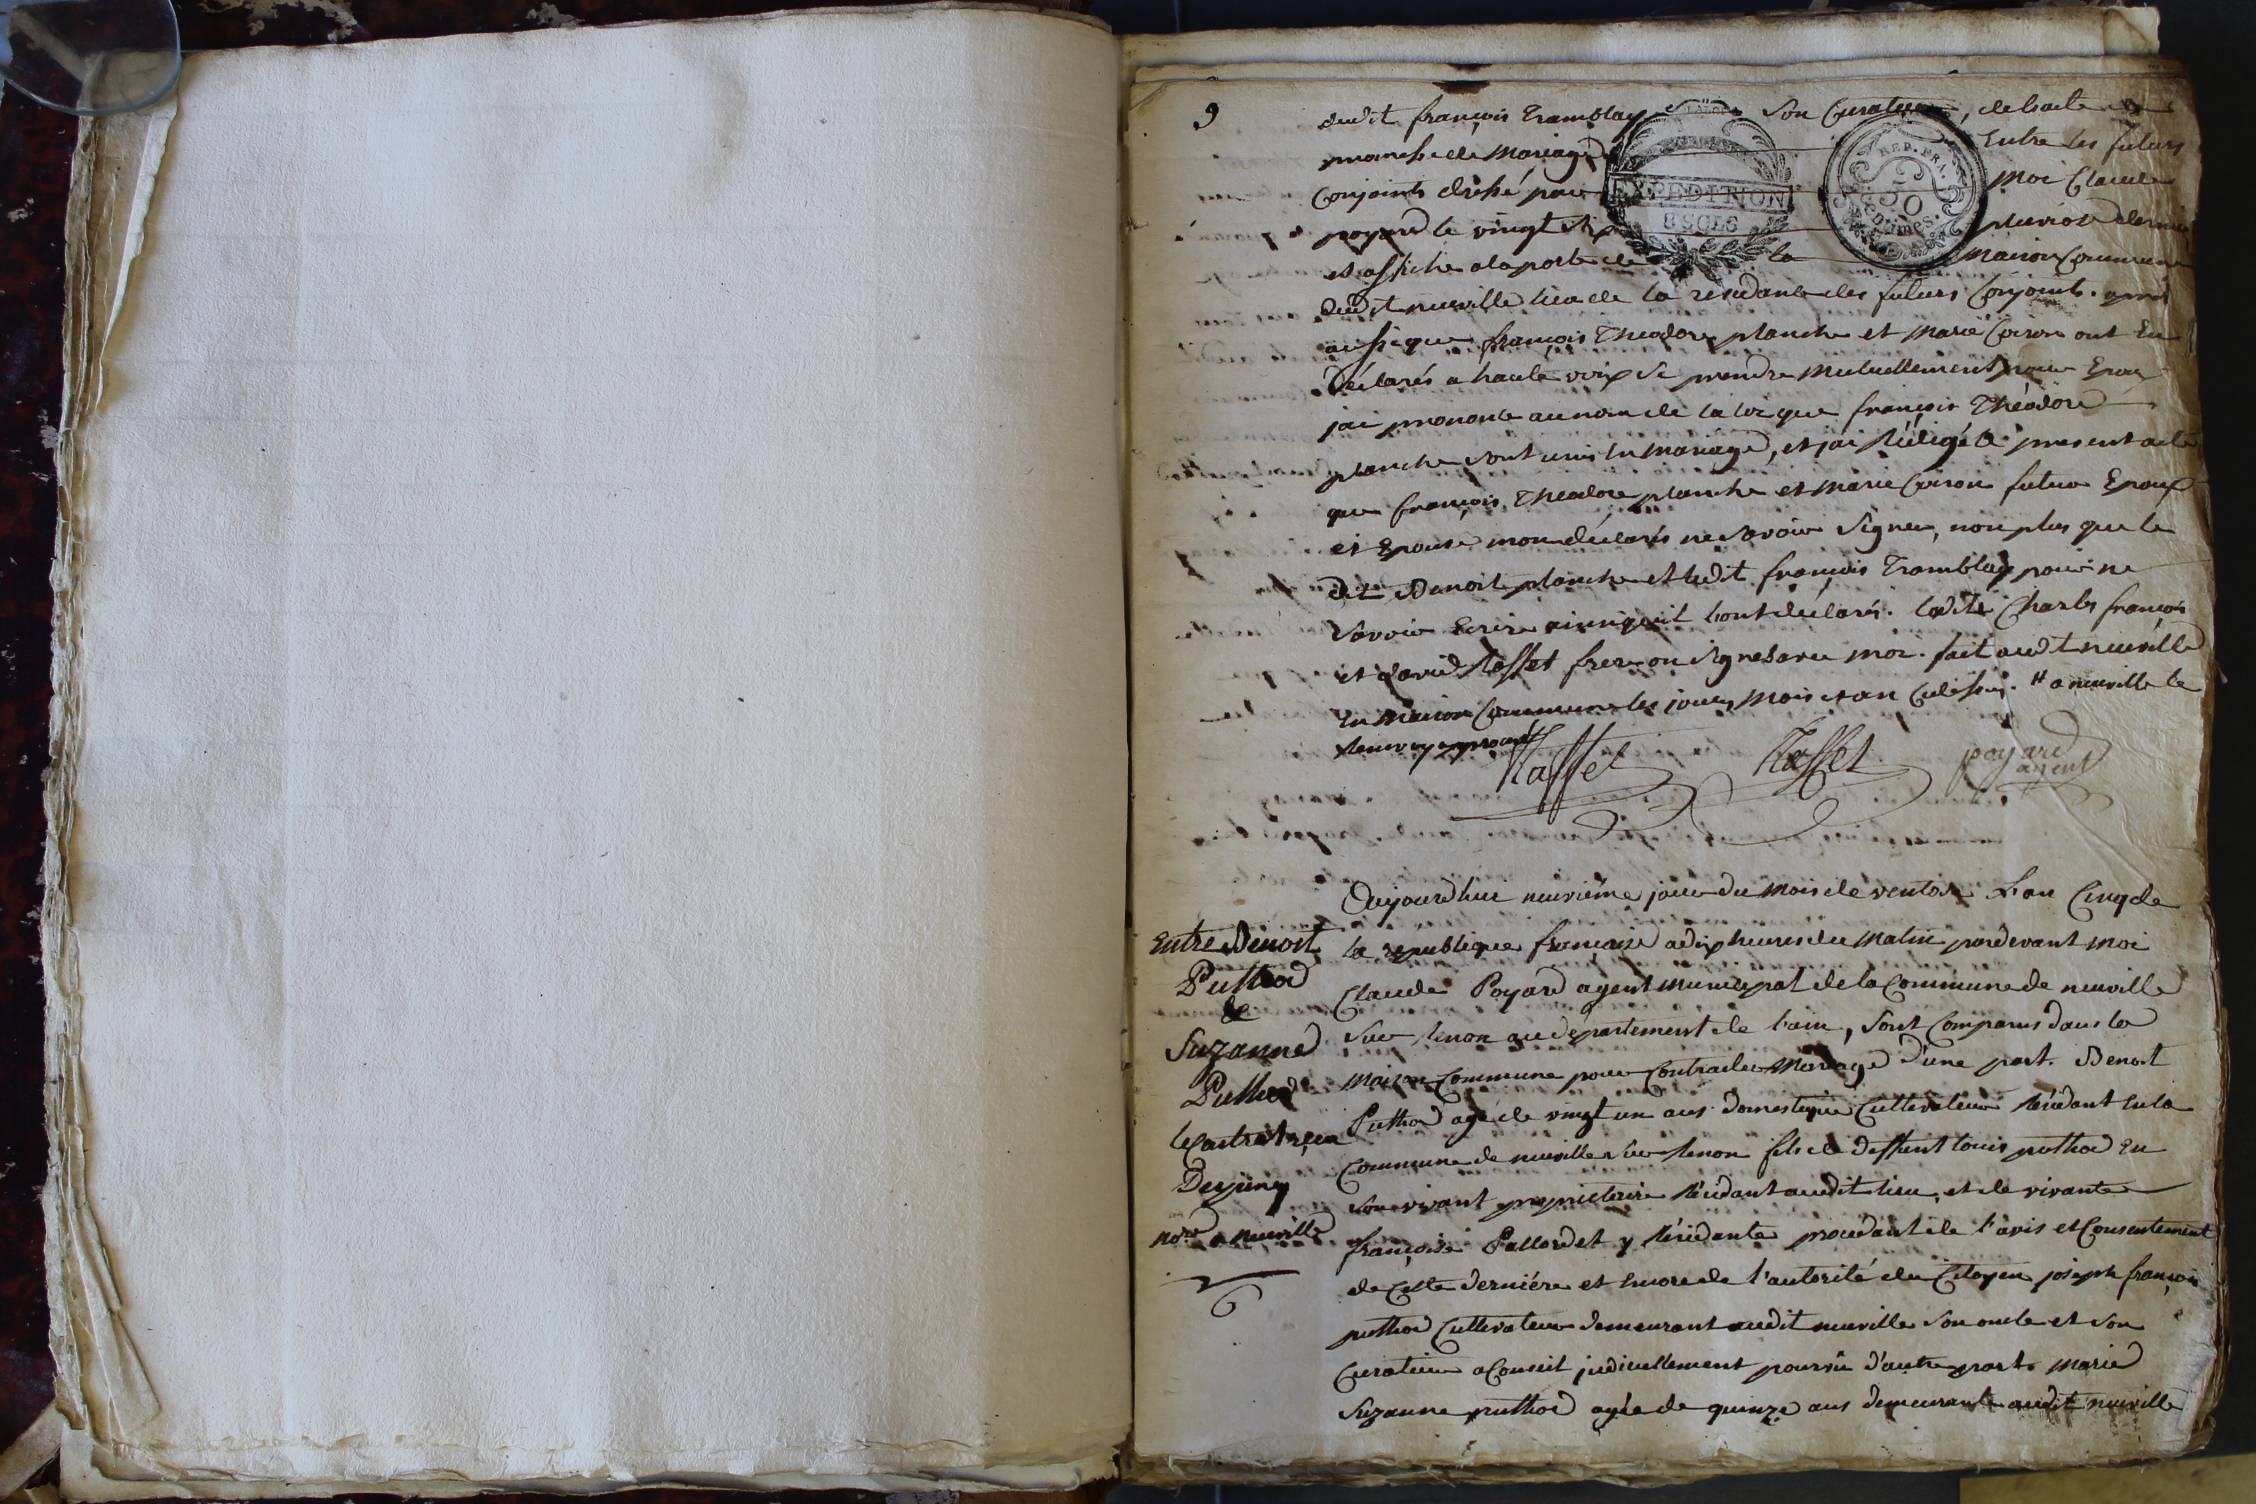 9
dudit françois Tramblay son Curateur, de l'acte de
promesse de Mariage Entre les futurs
Conjoints dressé par Moi Claude
poyard le vingt six pluviose dernier
et affiché a la porte de la Maison Commune
dudit neuville lieu de la residance des futurs Conjoints. apres
aussi que françois Theodore planche et Marie Coiron ont Eu
Déclarés a haute voix se prendre Mutuellement pour Epoux
jai prononcé au nom de la loi que françois Théodore
planche sont unis en mariage, et jai Rédigé le present acte
que françois Theodore planche et Marie Coiron futur Epoux
et Epouse mon déclarés ne Savoir Signer, non plus que le
dit Benoit planche et ledit françois Tramblay pour ne
Savoir Ecrire ainsi qu'il l'ont déclarés. lesdits Charles françois
et david Rasset frere on Signés avec moi. fait audit neuville
En Maison Commune les jour, Mois et an Cudessus. # a neuville le
Renvoy approuvé
Rasset Rasset poyard
agent
Aujourdhui neuvième jour du Mois de ventose L'an Cinq de
la republique française a dix heures du Matin pardevant moi
Claude Poyard agent municipal de la Commune de neuville
Sur Renon au département de l'ain, Sont Comparus dans la
Maison Commune pour Contracter Mariage d'une part. Benoit
Puthod agé de vingt un ans domestique Cultivateur Résidant En la
Commune de neuville Sur Renon fils de deffunt louis puthod En
Son vivant propriétaire Résidant audit lieu, et de vivante
françoise Pallordet y Résidante procedant de l'avis et Consentement
de Cette derniére et Encore de l'autorité du Citoyen joseph françois
puthod Cultivateur demeurant audit neuville Son oncle et Son
Curateur a Conseil judiciellement pourvû d'autre part Marie
Suzanne puthod agée de quinze ans demeurante audit neuville
Entre Benoit
Puthod
&
Suzanne
Puthod
le Contrat reçu
Derpiney
no.re a neuville
EXPEDITION
8 SOLS
REP. FRA.
50